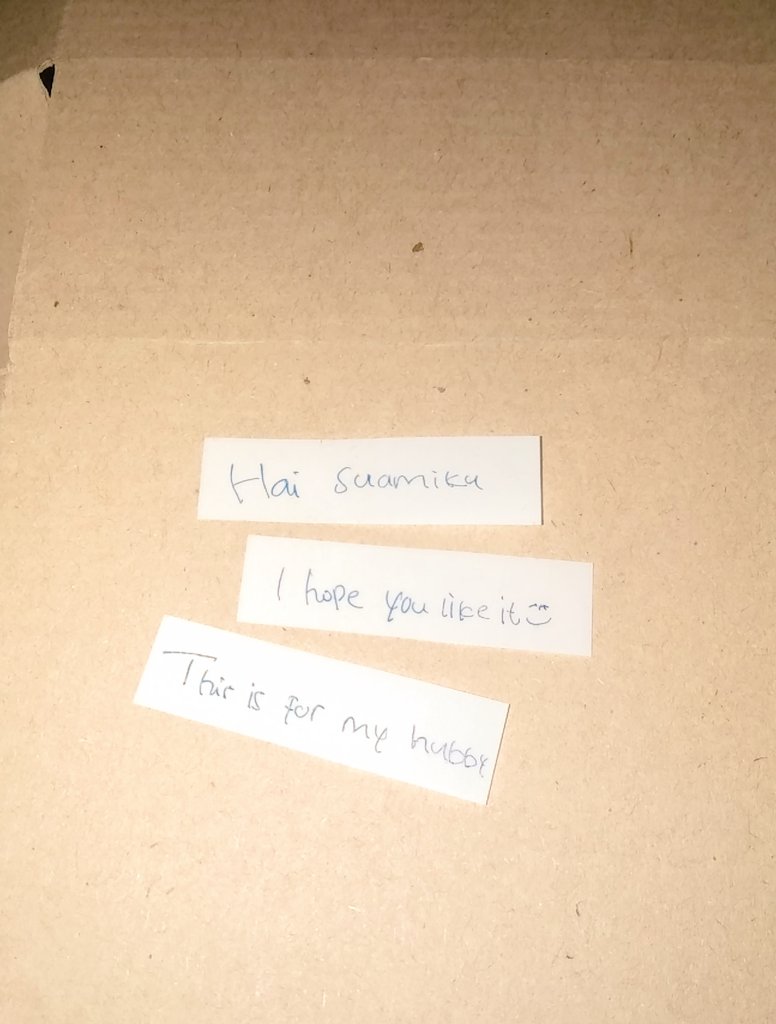 Hai suamiku
I hope you like it
This is for my hubby